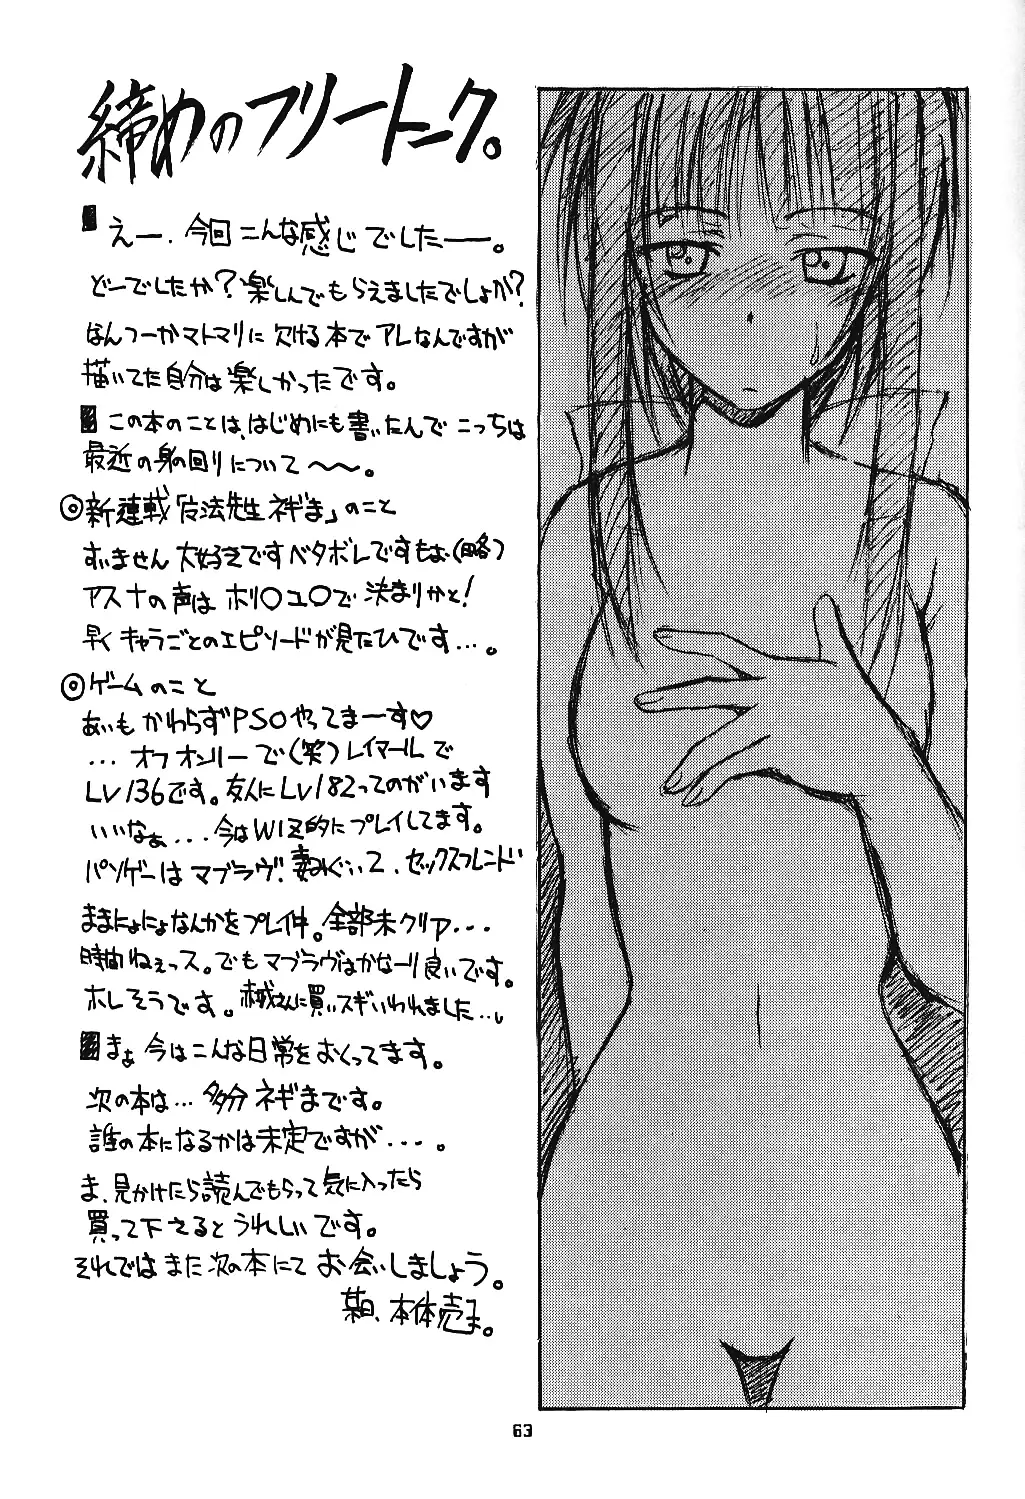 締めのフリートーク。
えー、今回こんな感じでしたー。
どーでしたか?楽しんでもらえましたでしょか?
なんつーかマトマリに欠ける本でアレなんですが
描いてた自分は楽しかったです。
この本のことは、はじめにも書いたんでこっちは
最近の身の回りについて〜〜。
◎新連載「魔法先生ネギま」のこと
すいません大好きですベタボレですもぉ(略)
アスナの声はホリ〇ユ〇で決まりかと!
早くキャラごとのエピソードが見たひです...。
◎ゲームのこと
あいもかわらずPSOやってまーす♡
...オフオンリーで(笑)レイマールで
LV136です。友人にLV182ってのがいます
いいなぁ...今はWIZ的にプレイしてます。
パソゲーはマブラヴ、妻みぐい2、セックスフレンド
ままにょにょなんかをプレイ中。全部未クリア...
時間ねぇっス。でもマブラヴはかなーり良いです。
ホレそうです。さんに買いスギいわれました...。
まぁ今はこんな日常をおくってます。
次の本は...多分ネギまです。
誰の本になるかは未定ですが...。
ま、見かけたら読んでもらって気に入ったら
買って下さるとうれしいです。
それではまた次の本にてお会いしましょう。
某日、本体売ま。
63